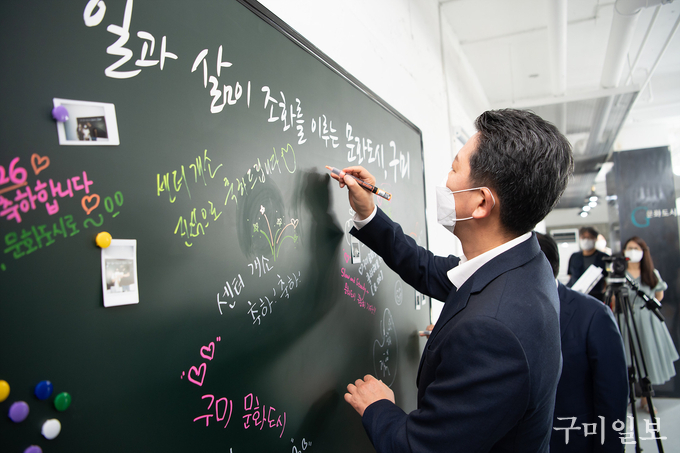 일과 삶이 조화를 이루는 문화도시, 구미
센터 개소
진심으로 축하드립니다
26
축하합니다
문화도시로
센터 개소
축하! 축하!
구미 문화도시
문화도시
구미일보